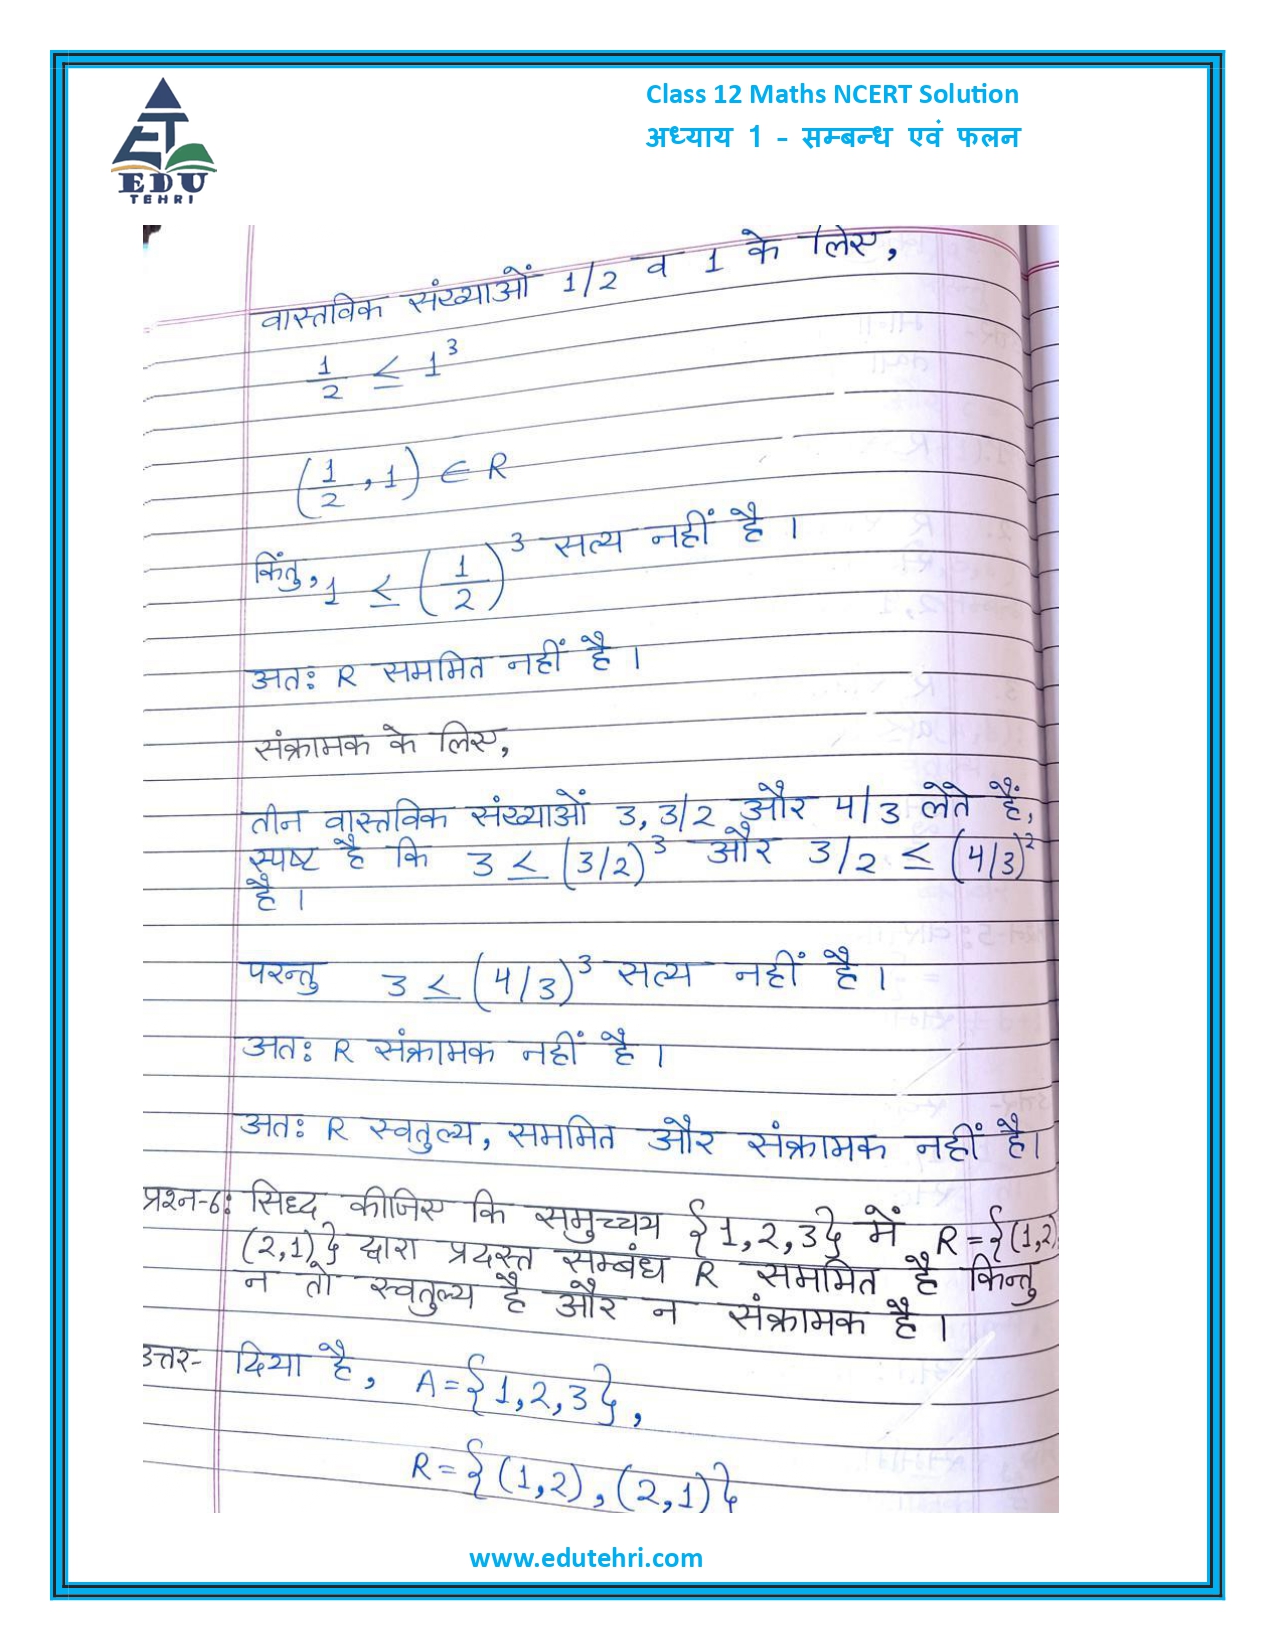 Class 12 Maths NCERT Solution
अध्याय 1 - सम्बन्ध एवं फलन
EDU
TEHRI
वास्तविक संख्याओं 1/2 व 1 के लिए,
1/2 ≤ 1³
(1/2, 1) ∈ R
किंतु, 1 ≤ (1/2)³ सत्य नहीं है।
अतः R सममित नहीं है।
संक्रामक के लिए,
तीन वास्तविक संख्याओं 3, 3/2 और 4/3 लेते हैं,
स्पष्ट है कि 3 ≤ (3/2)³ और 3/2 ≤ (4/3)²
है।
परन्तु 3 ≤ (4/3)³ सत्य नहीं है।
अतः R संक्रामक नहीं है।
अतः R स्वतुल्य, सममित और संक्रामक नहीं है।
प्रश्न-6: सिध्द कीजिए कि समुच्चय {1,2,3} में R={(1,2),
(2,1)} द्वारा प्रदस्त सम्बंध R सममित है किन्तु
न तो स्वतुल्य है और न संक्रामक है।
उत्तर- दिया है, A={1,2,3},
R={(1,2),(2,1)}
www.edutehri.com